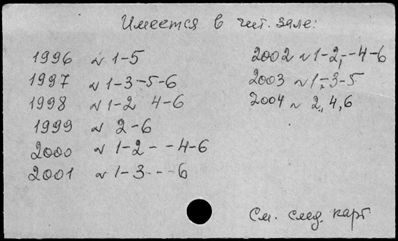 Имеется в чит. зале:
1996 N 1-5
1997 N 1-3-5-6
1998 N 1-2 4-6
1999 N 2-6
2000 N 1-2--4-6
2001 N 1-3---6
2002 N 1-2,-4-6
2003 N 1,-3-5
2004 N 2,4,6
См. след карт